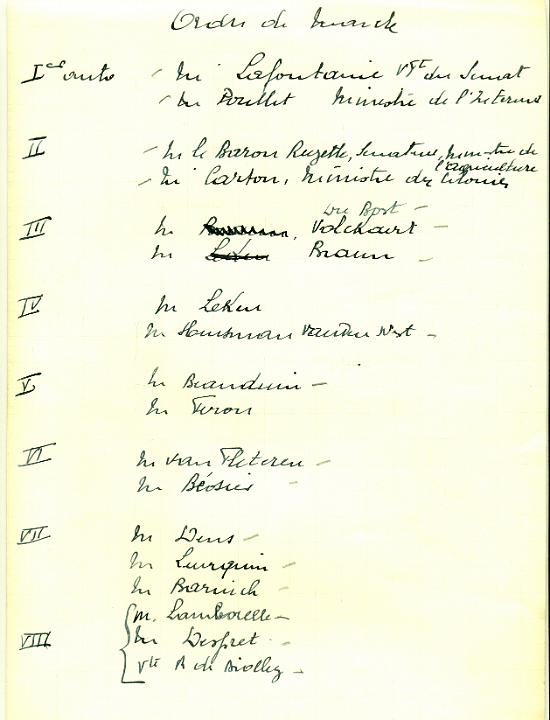 Ordre de marche
Ière auto - Mr Lafontaine Vpt du Senat
- Mr Poullet Ministre de l'Interieur
II - Mr le Baron Ruzette, Senateur, Ministre de
l'agriculture
- Mr Carton, Ministre des Colonies
Du Bost -
III Mr Volckaert -
Mr Braun -
IV Mr LeKeu
Mr Huisman Vanden Nest -
V Mr Beauduin -
Mr Feron
VI Mr Van Fleteren -
Mr Béosier -
VII Mr Dens -
Mr Leurquin -
Mr Barnich -
VIII M. Lamborelle -
Mr Despret -
Vte R de Biolley -